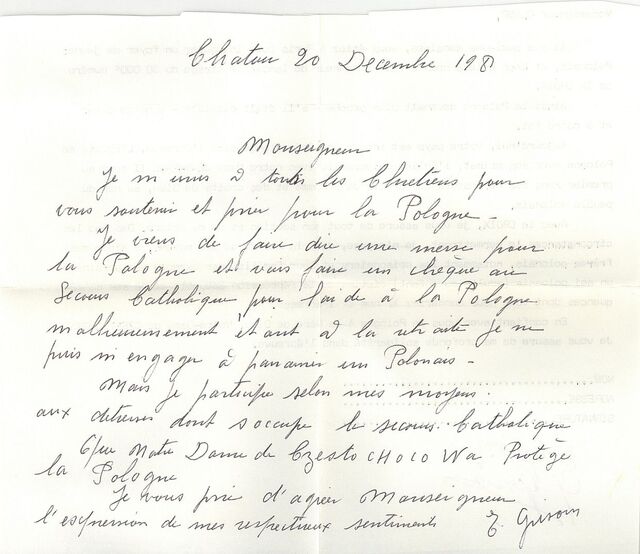 Chatou 20 Decembre 1981
Monseigneur
Je m unis à touts les Chretiens pour
vous soutenir et prier pour la Pologne -
Je viens de faire dire une messe pour
la Pologne et vais faire un chèque au
Secours Catholique pour l'aide à la Pologne
malheureusement étant à la retraite je ne
puis m engager à parrainer un Polonais -
Mais je participe selon mes moyens
aux détresses dont s occupe le secours Catholique
Que Notre Dame de CzestocHoco Wa Protège
la Pologne
Je vous prie d'agréer Monseigneur
l'expression de mes respectueux sentiments E.